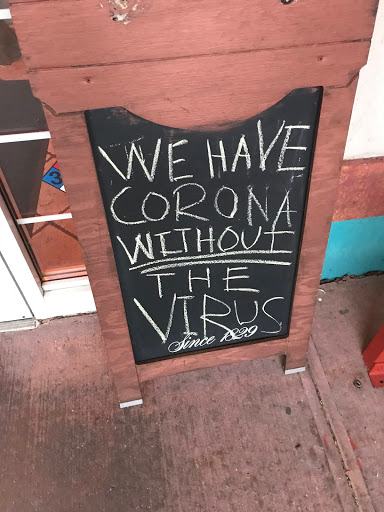 WE HAVE
CORONA
WITHOUT
THE
VIRUS
Since 1829
3